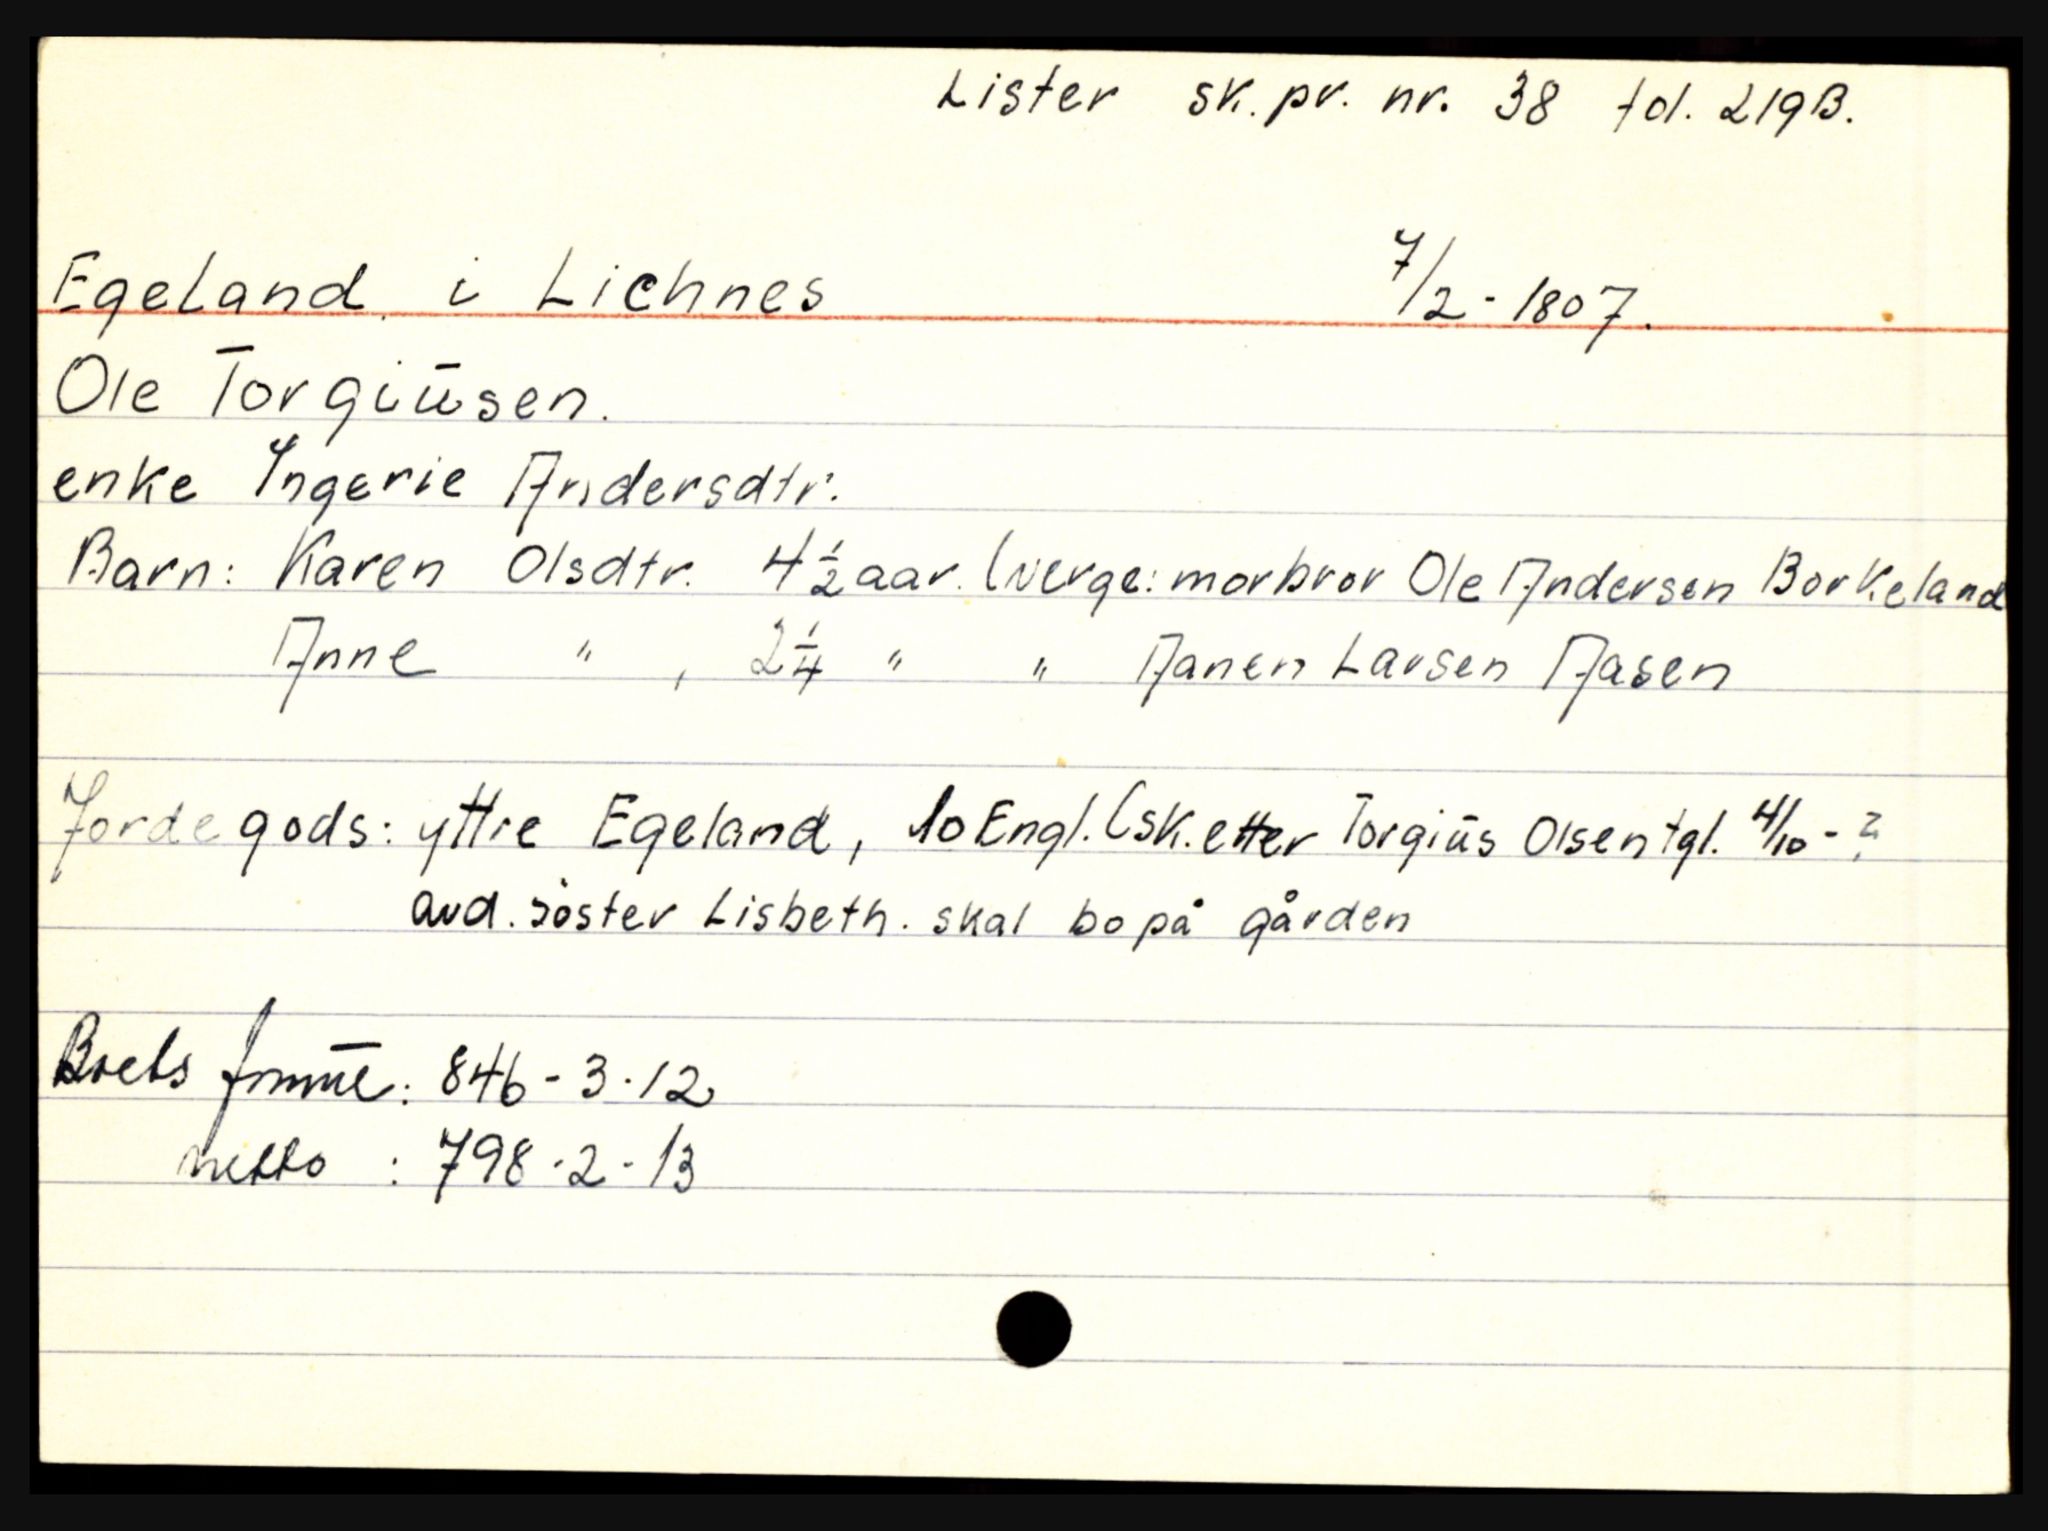 Lister sk. pr. nr. 38 fol. 219B.
Egeland i Lichnes 7/2 - 1807.
Ole Torgiūsen.
enke Ingerie Andersdtr.
Barn: Karen Olsdtr. 4 1/2 aar. (verge: morbror Ole Andersen Borkeland
Anne " , 2 1/4 " " Aanen Larsen Aasen
Jordegods: yttre Egeland, 10 Engl. (sk. etter Torgiūs Olsen tgl. 4/10 - ?
avd. söster Lisbeth. skal bo på gården
Boets : 846 - 3 - 12
netto : 798 - 2 - 13